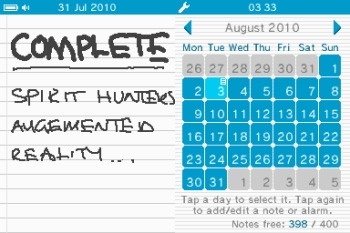 31 Jul 2010
COMPLETE
SPIRIT HUNTERS
AUGEMENTED
REALITY...
03 33
August 2010
Mon Tue Wed Thu Fri Sat Sun
26 27 28 29 30 31 1
2 3 4 5 6 7 8
9 10 11 12 13 14 15
16 17 18 19 20 21 22
23 24 25 26 27 28 29
30 31 1 2 3 4 5
Tap a day to select it. Tap again
to add/edit a note or alarm.
Notes free: 398 / 400